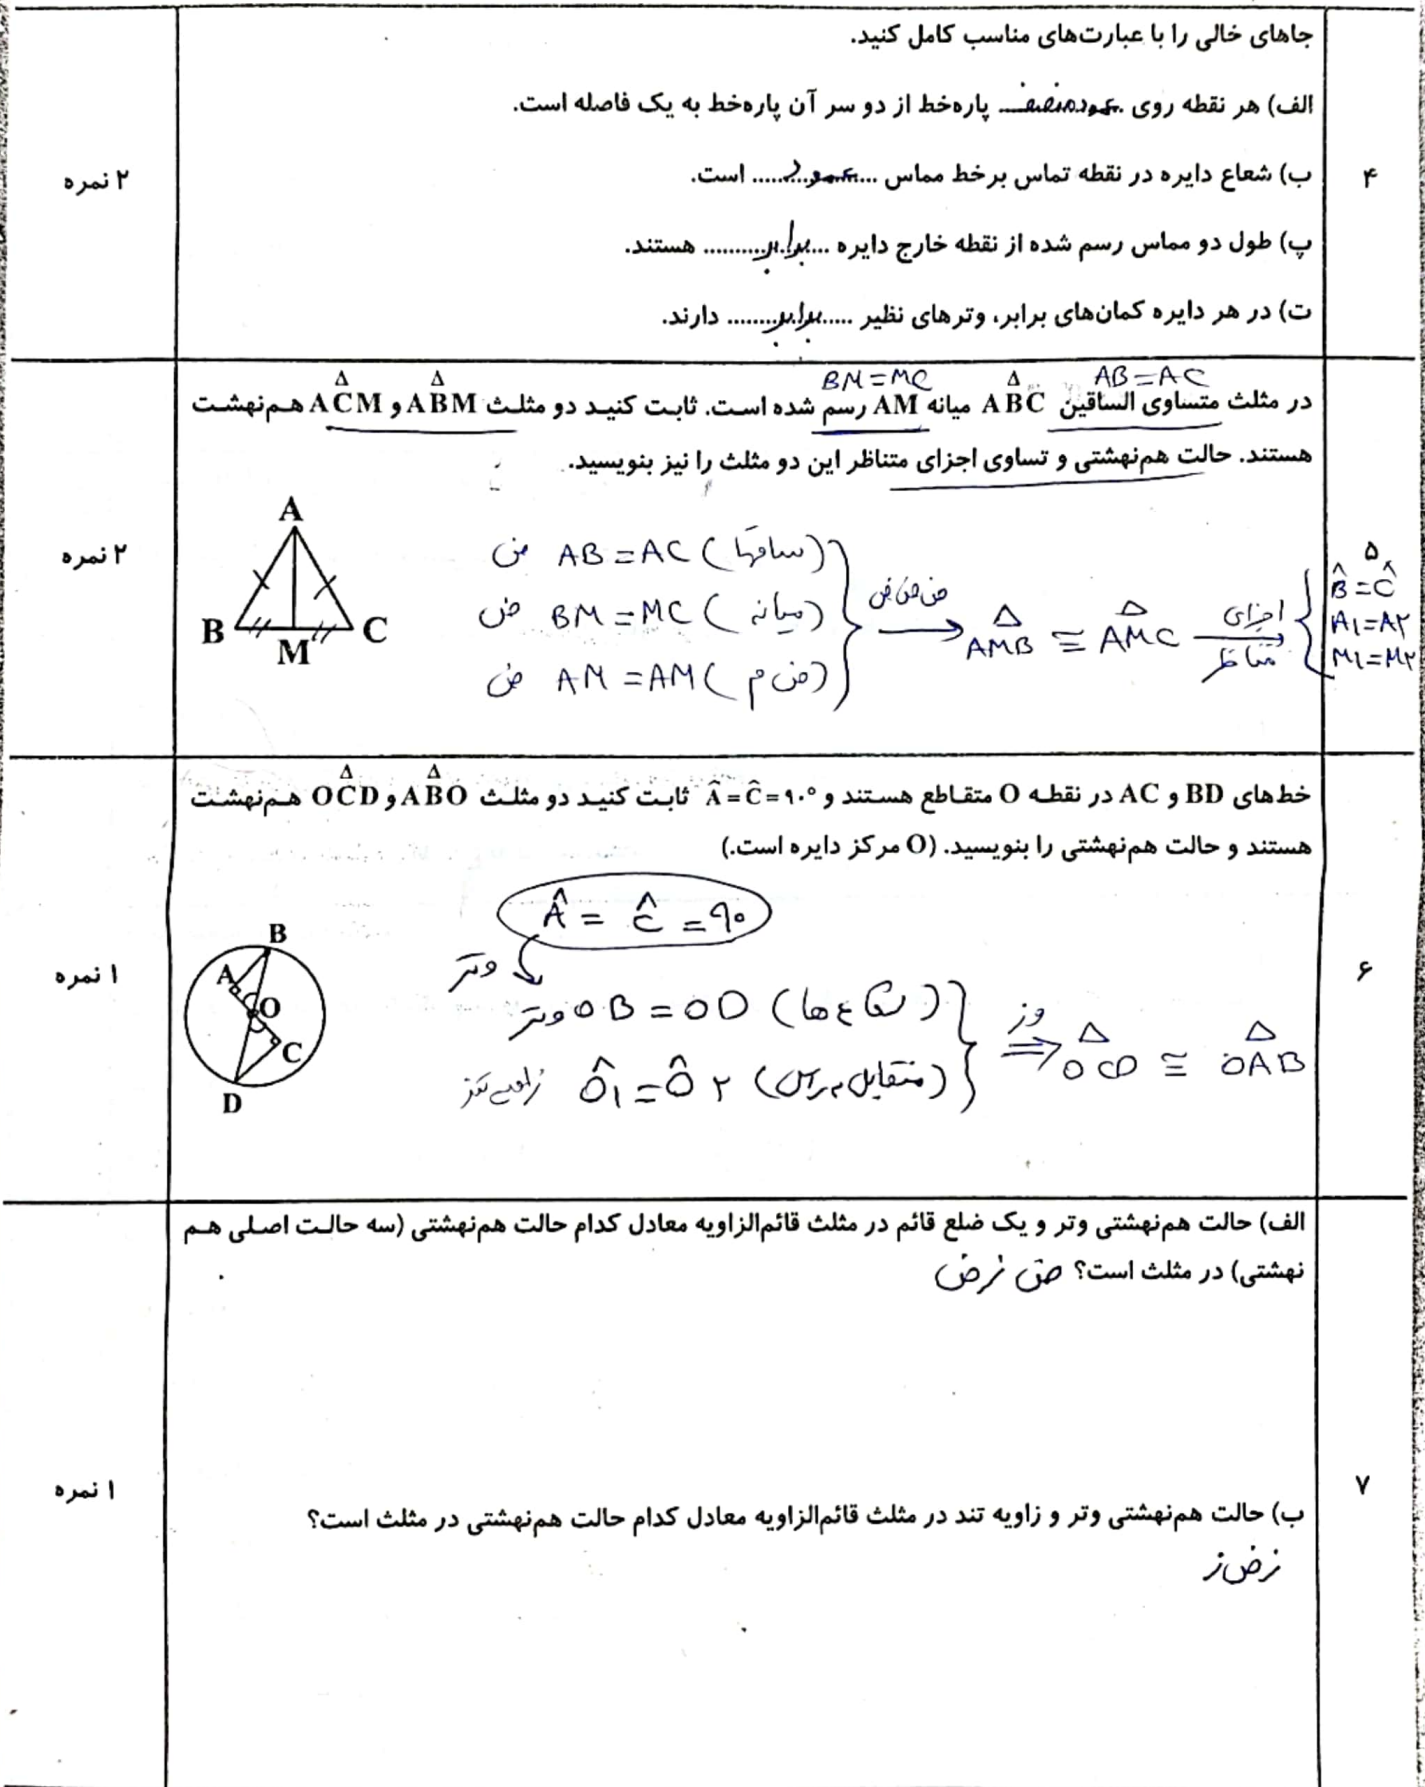 جاهای خالی را با عبارت‌های مناسب کامل کنید.
الف) هر نقطه روی عمودمنصف پاره‌خط از دو سر آن پاره‌خط به یک فاصله است.
۴
۲ نمره
ب) شعاع دایره در نقطه تماس برخط مماس ....عمود.... است.
پ) طول دو مماس رسم شده از نقطه خارج دایره ....برابر.... هستند.
ت) در هر دایره کمان‌های برابر، وترهای نظیر ....برابر.... دارند.
AB=AC
BM=MC
در مثلث متساوی الساقین ABC میانه AM رسم شده است. ثابت کنید دو مثلث ABM و ACM هم‌نهشت
هستند. حالت هم‌نهشتی و تساوی اجزای متناظر این دو مثلث را نیز بنویسید.
۵
۲ نمره
A
B
M
C
ض AB=AC (ساقها)
ض BM=MC (میانه)
ض AM=AM (ض م)
ض ض ض
AMB ≅ AMC
اجزای
متناظر
B̂=Ĉ
A۱=A۲
M۱=M۲
خط‌های BD و AC در نقطه O متقاطع هستند و Â=Ĉ=۹۰° ثابت کنید دو مثلث ABO و OCD هم‌نهشت
هستند و حالت هم‌نهشتی را بنویسید. (O مرکز دایره است.)
۶
۱ نمره
B
A
O
C
D
Â = Ĉ = ۹۰
وتر
وتر OB = OD (شعاع ها)
زاویه تند Ô۱ = Ô۲ (متقابل به راس)
وز
OCD ≅ OAB
الف) حالت هم‌نهشتی وتر و یک ضلع قائم در مثلث قائم‌الزاویه معادل کدام حالت هم‌نهشتی (سه حالت اصلی هم
نهشتی) در مثلث است؟ ض ز ض
۷
۱ نمره
ب) حالت هم‌نهشتی وتر و زاویه تند در مثلث قائم‌الزاویه معادل کدام حالت هم‌نهشتی در مثلث است؟
ز ض ز